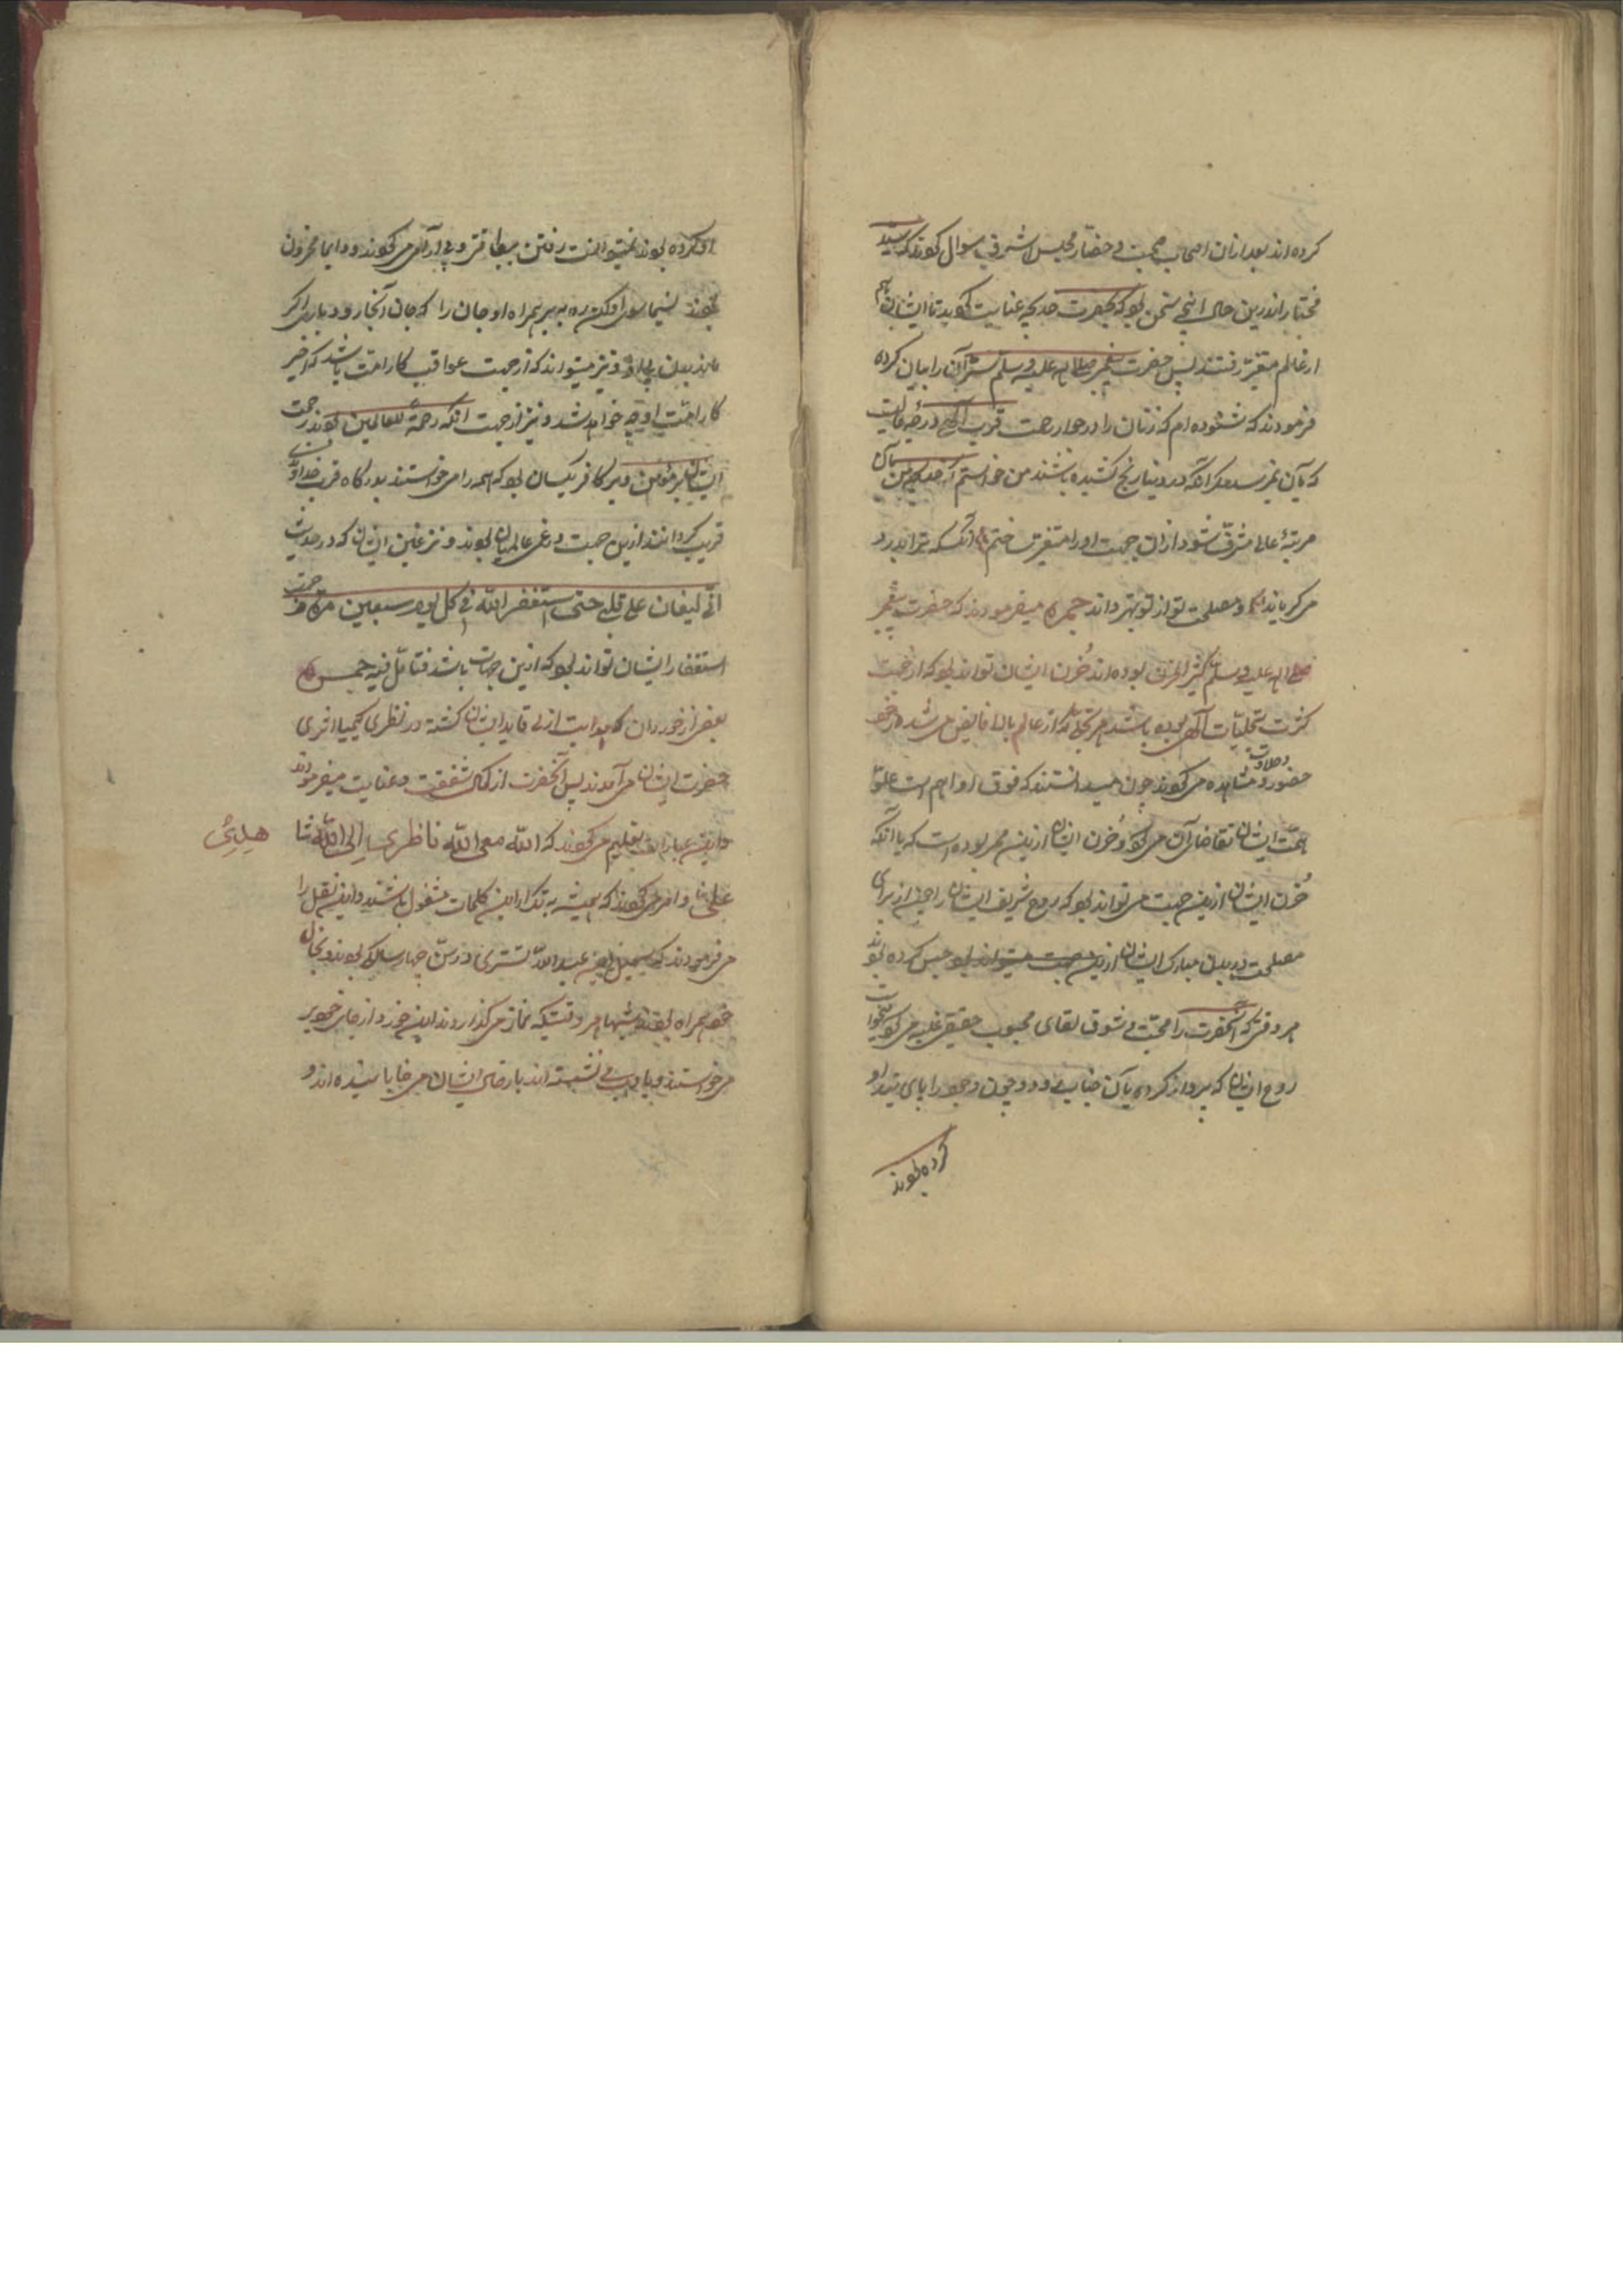 کرده اند بعد ازان اصحاب صحبت و حضار مجلس اشرف سوال کردند که سید
مختار را درین حال این چه سخن بود که بحضرت خدیجه عنایت کردید تا ایشان
از عالم متغیر رفتند پس حضرت پیغمبر صلی الله علیه وسلم سر آن را بیان کرده
فرمودند که شنوده ام که زنان را در جوار رحمت قرب الهی درجه عالیست
که بآن نمیرسد مگر آنکه در دنیا رنج کشیده باشند من خواستم که خدیجه من بآن
مرتبهٔ عالی مشرف شود ازان جهت او را متغیر ساختم آنکس که ترا
مصلحت تو از تو بهتر داند میفرمودند که حضرت پیغمبر
صلی الله علیه وسلم کثیر الحزن بوده اند حزن ایشان تواند بود که از جهت
کثرت تجلیات الهی بوده باشد هر تجلی که از عالم بالا فایض می شده
حضور و مشاهده می کردند چون میدانستند که فوق او هم است علو
همت ایشان تقاضای آن می کرد و حزن ایشان ازین ممر بوده است که با آنکه
حزن ایشان ازین جهت می تواند بود که روح شریف ایشان را از برای
مصلحت در بدن مبارک ایشان حبس کرده بودند
هر وقتی که آنحضرت را محبت و شوق لقای محبوب حقیقی غلبه می کرد میخواست
روح ایشان که پرواز کرده بآن جناب رود و چون وجود را پای بند او
کرده بودند
او کرده بودند نمیتوانست رفتن بیطاقتی و بی آرامی می کردند و دایما محزون
بودند نسیما سوی او کن ره ببر همراه او جان را که جان آنجا رود باری اگر
ماند بدن و نیز میتواند که از جهت عواقب کار امت باشد که آخر
کار امت او چه خواهد شد و نیز از جهت آنکه رحمة للعالمین بودند رحمت
ایشان بر مؤمن و بر کافر یکسان بود که همه را می خواستند بدرگاه قرب خداوندی
قریب گردانند ازین جهت در غم عالمیان بودند و نیز غین ایشان که در حدیث
انی لیغان علی قلبی حتی استغفر الله فی کل یوم سبعین مرة
استغفار ایشان تواند بود که ازین جهت باشد فتأمل فیه
بعضی از خوردان که هدایت ازلی قاید ایشان گشته در نظری کیمیا اثری
حضرت ایشان می آمدند پس آنحضرت از کمال شفقت و عنایت میفرمودند
و این عبارات تعلیم می کردند که الله معی الله ناظری الی الله شا
هدلئ
و امر می کردند که همیشه به تکرار این کلمات مشغول باشید و این نقل را
می فرمودند که سهل بن عبد الله تستری در سن چهار سالگی بودند و بخال
خود همراه بودند شبها هر وقتیکه نماز می گذاردند این خورد از جای خود بر
می خواستند و با ادب می نشسته اند بارها ایشان می خابانیده اند و